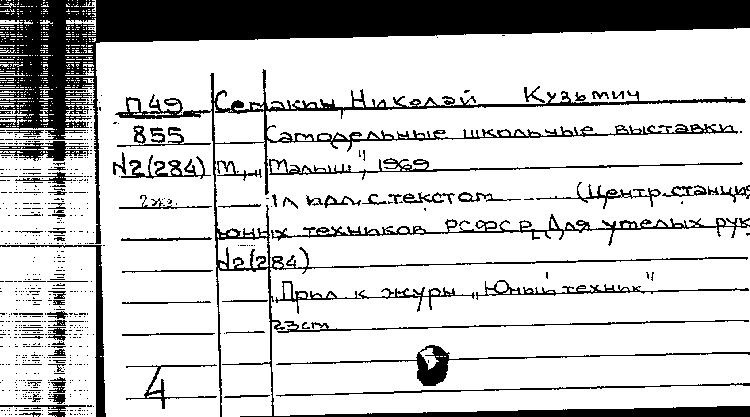 П49 Николай Кузьмич
855 Самодельные школьные выставки.
N2(284) М., „Малыш", 1969
2 экз. 1л илл. с текстом (Центр. станция
юных техников РСФСР. Для умелых рук
N2(284)
„Прил к журн „Юный техник"
23см
4